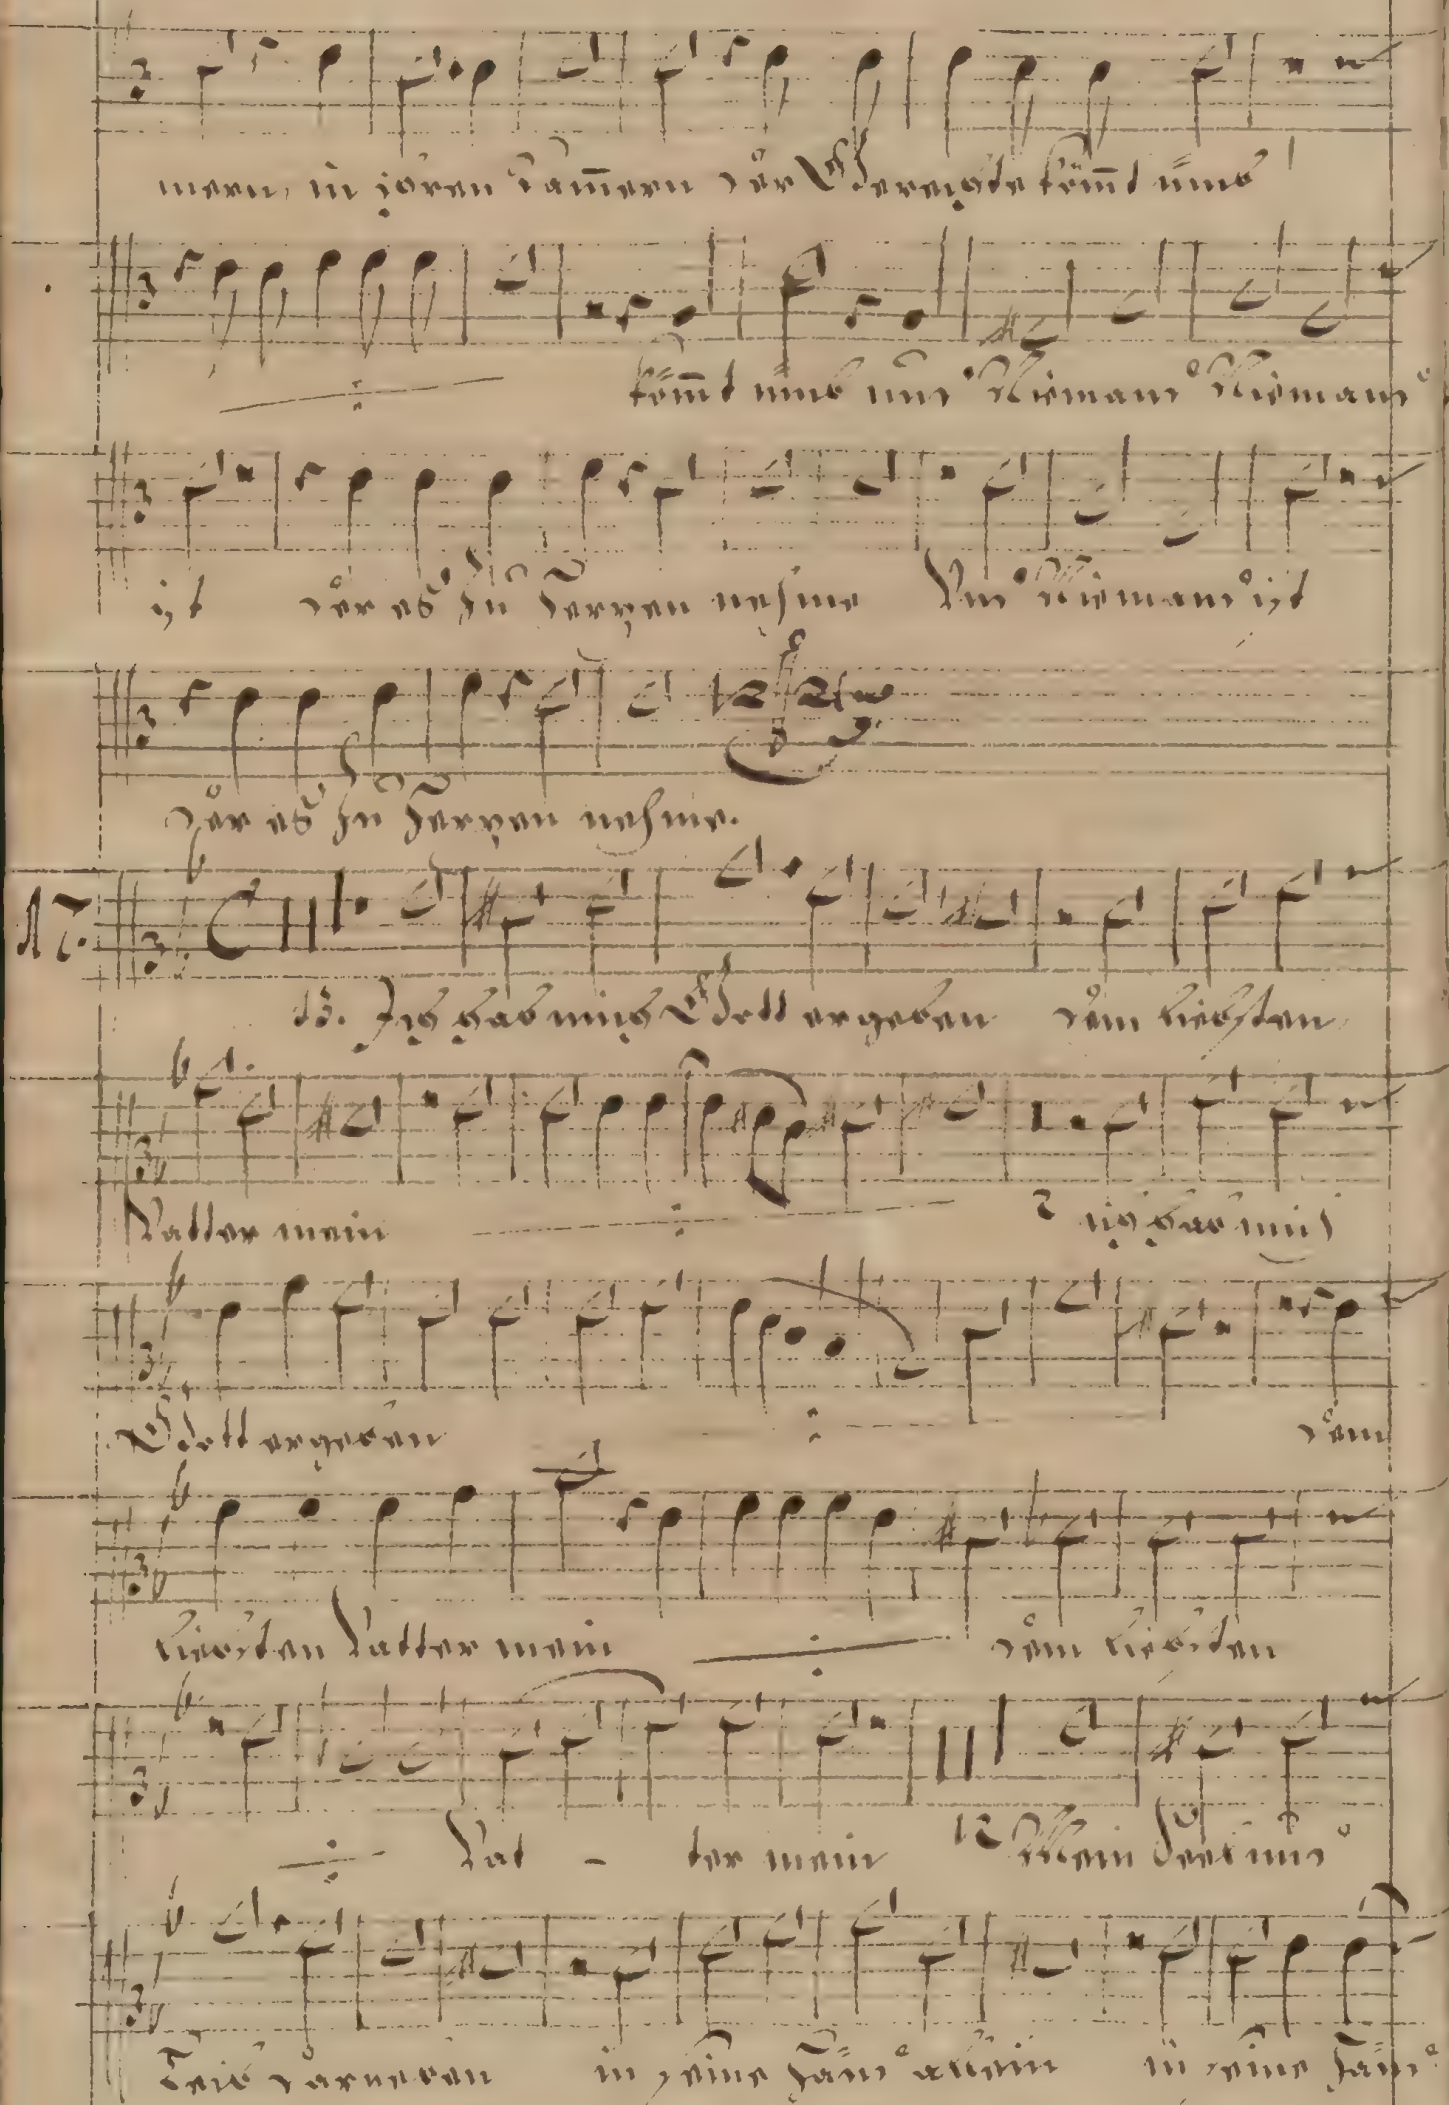 mern, in ihren Kam̄ern der Gerechte köm̄t ümb
köm̄t ümb und Niemand Niemand
ist der es zu Herzen nehme Und Niemand ist
der es zu Herzen nehme.
17.
13. Ich hab mich Gott ergeben dem liebsten
Vatter mein ich hab mich
Gott ergeben dem
liebsten Vatter mein dem liebsten
Vat - ter mein 12 Mein Seel und
Leib darneben in seine Händ allein in seine Händ